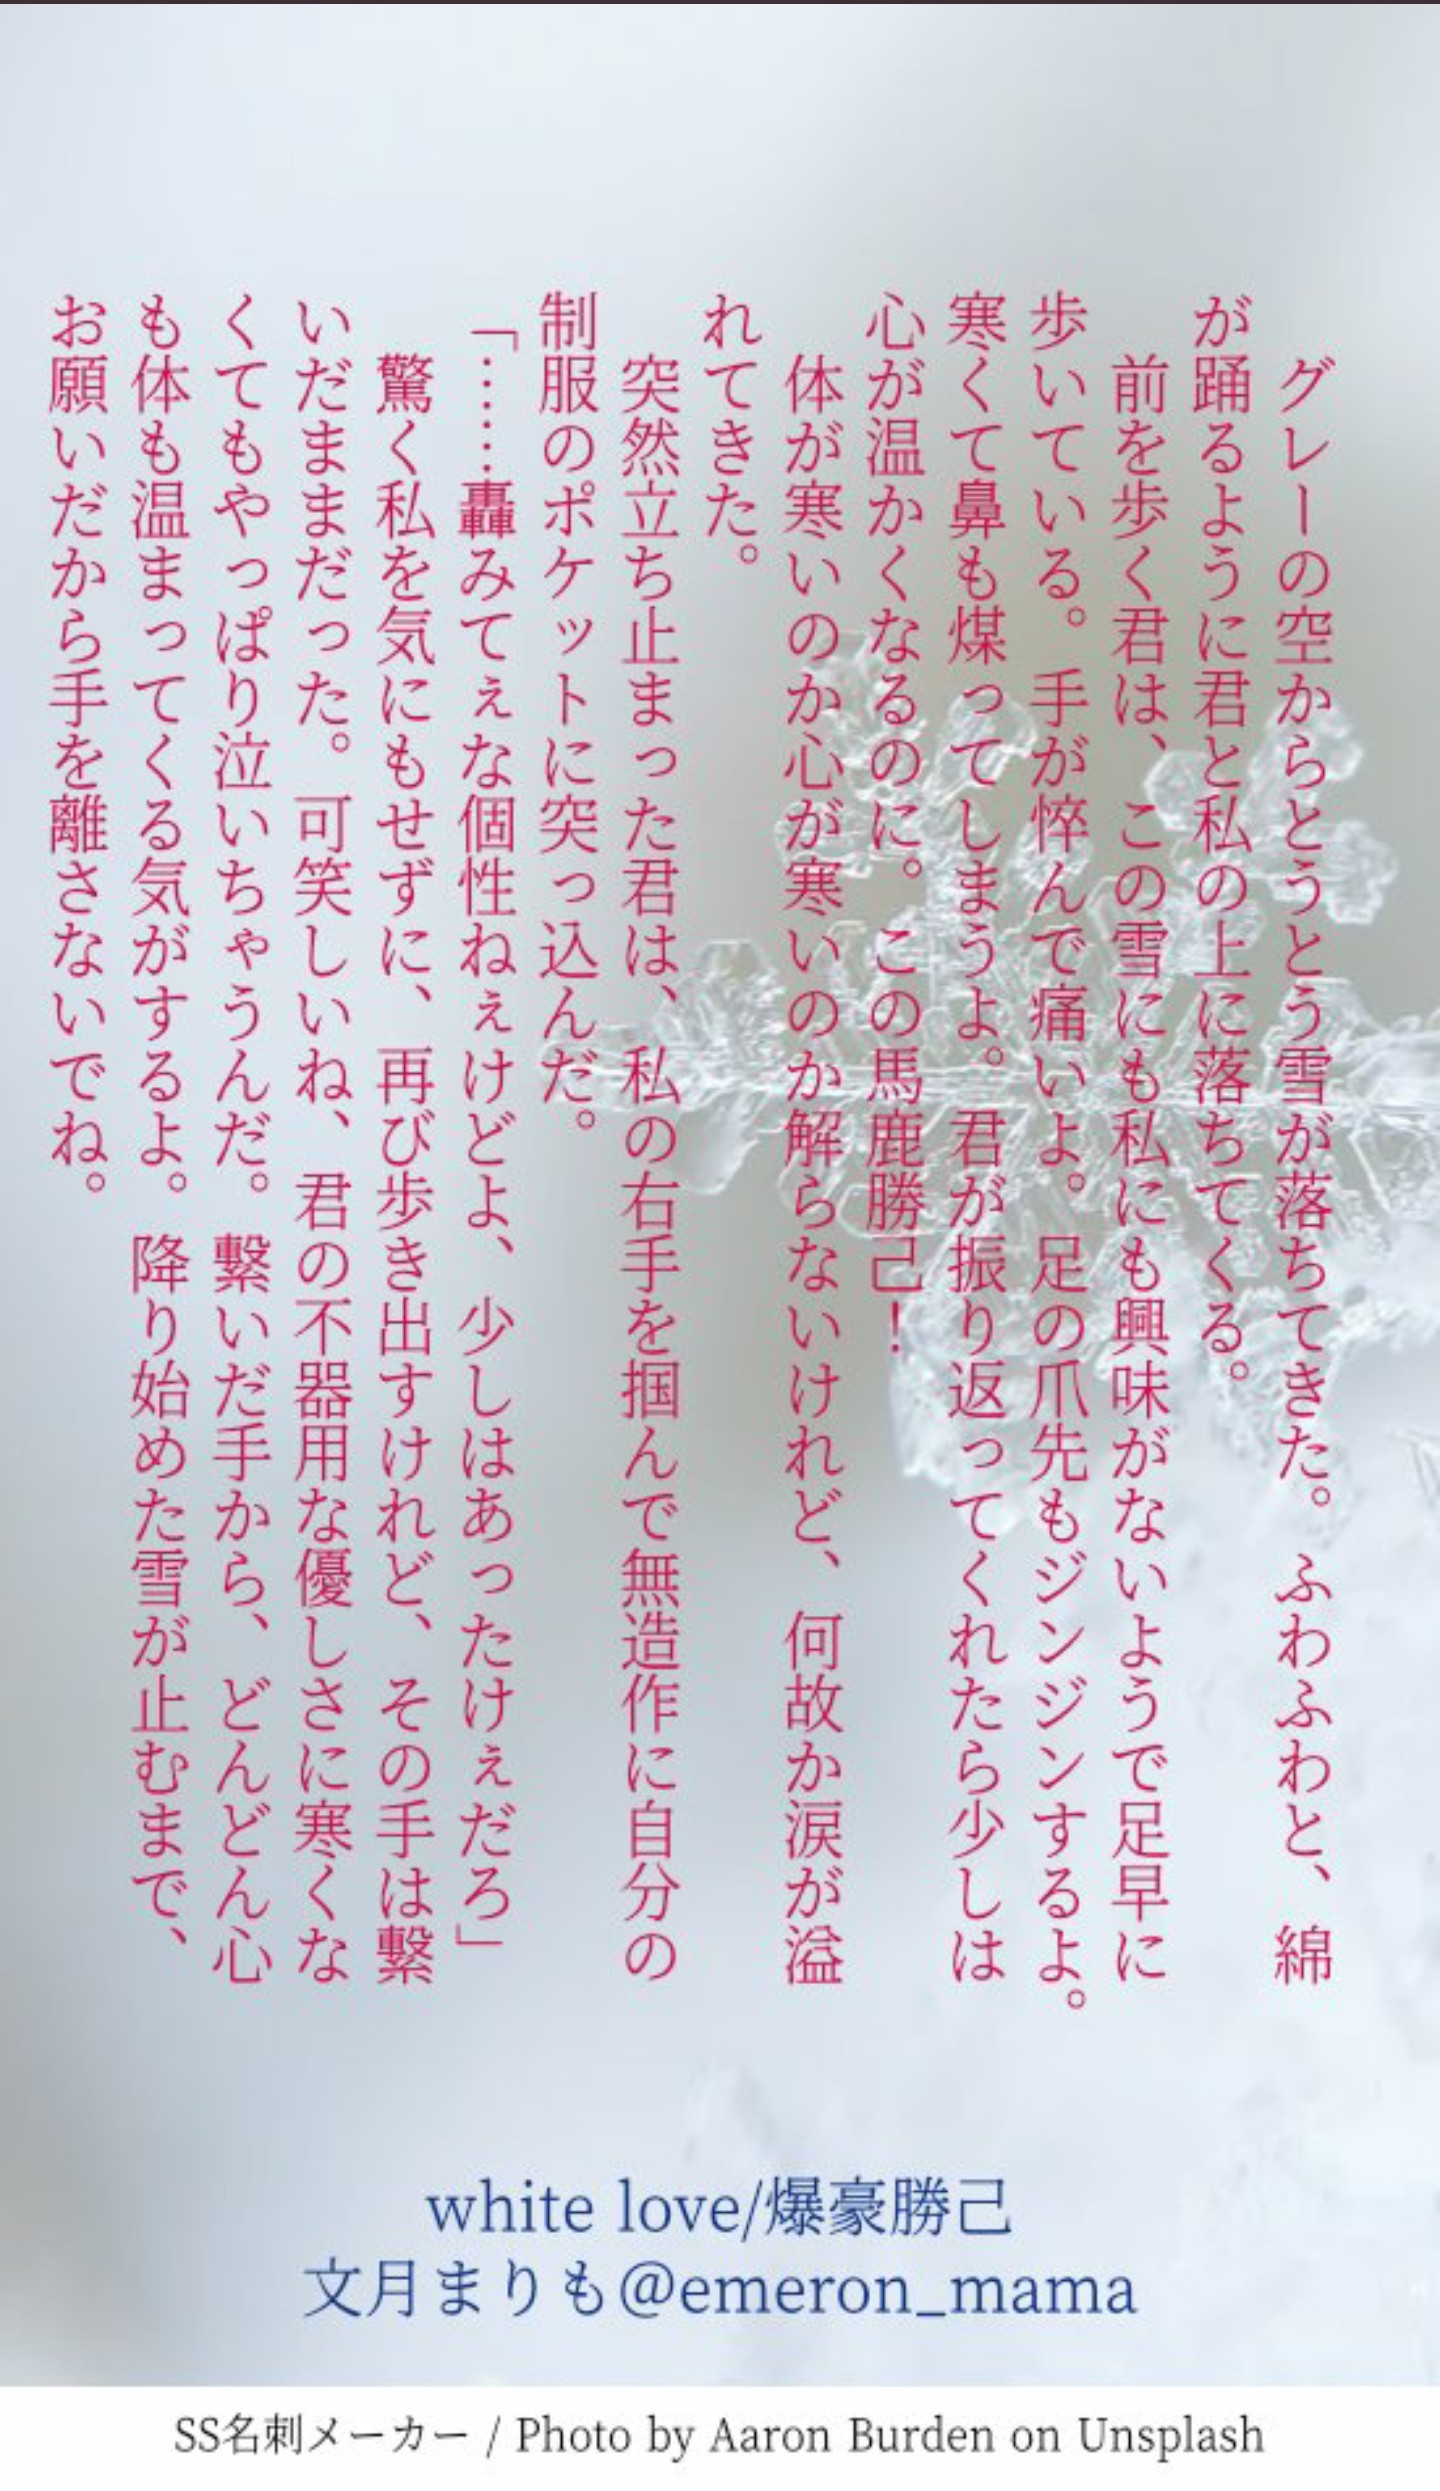 グレーの空からとうとう雪が落ちてきた。ふわふわと、綿
が踊るように君と私の上に落ちてくる。
前を歩く君は、この雪にも私にも興味がないようで足早に
歩いている。手が悴んで痛いよ。足の爪先もジンジンするよ。
寒くて鼻も煤ってしまうよ。君が振り返ってくれたら少しは
心が温かくなるのに。この馬鹿勝己！
体が寒いのか心が寒いのか解らないけれど、何故か涙が溢
れてきた。
突然立ち止まった君は、私の右手を掴んで無造作に自分の
制服のポケットに突っ込んだ。
「……轟みてぇな個性ねぇけどよ、少しはあったけぇだろ」
驚く私を気にもせずに、再び歩き出すけれど、その手は繋
いだままだった。可笑しいね、君の不器用な優しさに寒くな
くてもやっぱり泣いちゃうんだ。繋いだ手から、どんどん心
も体も温まってくる気がするよ。降り始めた雪が止むまで、
お願いだから手を離さないでね。
white love/爆豪勝己
文月まりも@emeron_mama
SS名刺メーカー / Photo by Aaron Burden on Unsplash